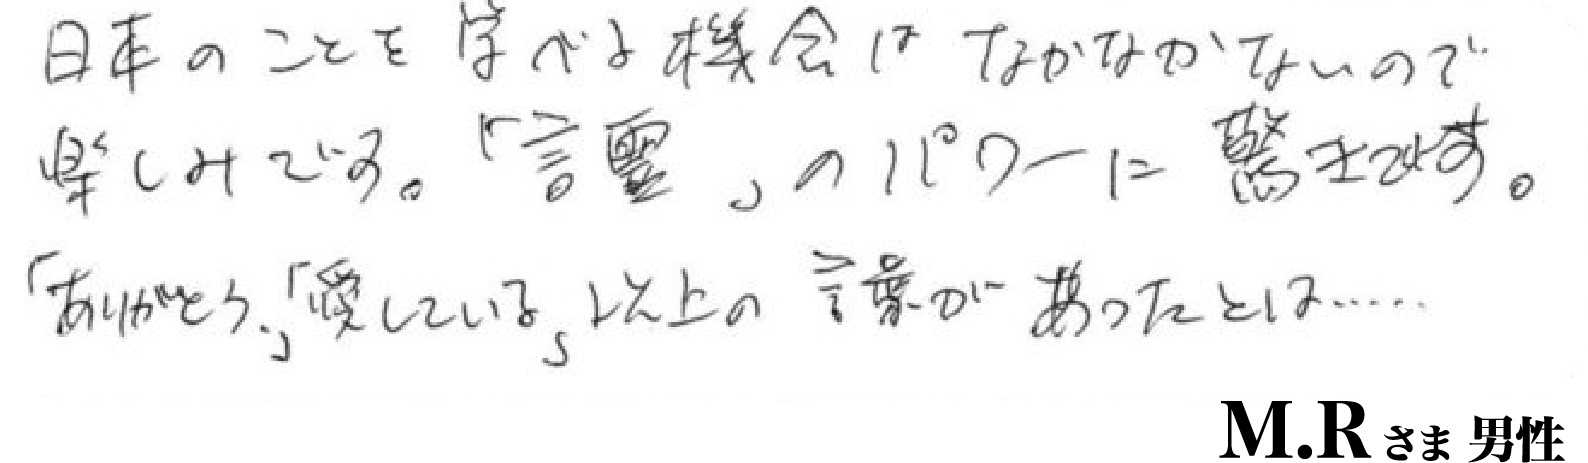 日本のことを学べる機会はなかなかないので
楽しみです。「言霊」のパワーに驚きです。
「ありがとう」「愛している」以上の言葉があったとは……
M.Rさま 男性